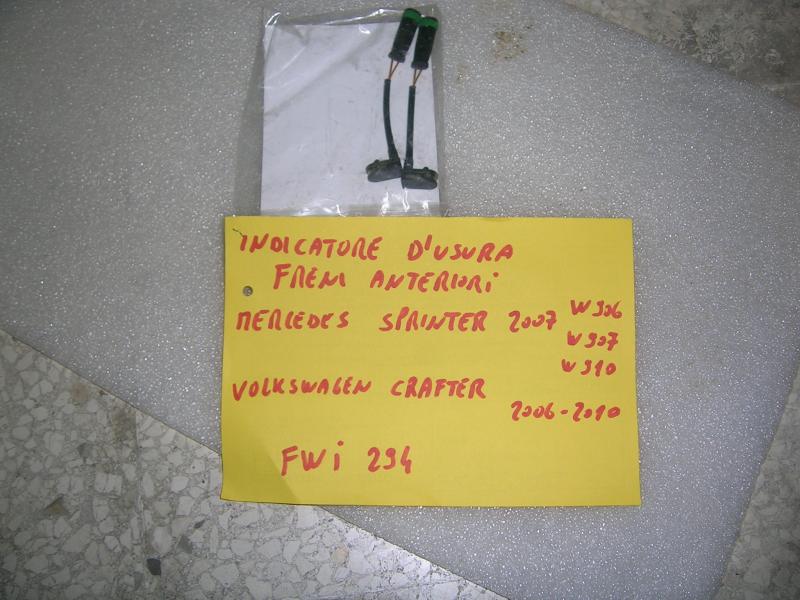 INDICATORE D'USURA
FRENI ANTERIORI
MERCEDES SPRINTER 2007 W906
W907
W910
VOLKSWAGEN CRAFTER
2006-2010
FWi 294